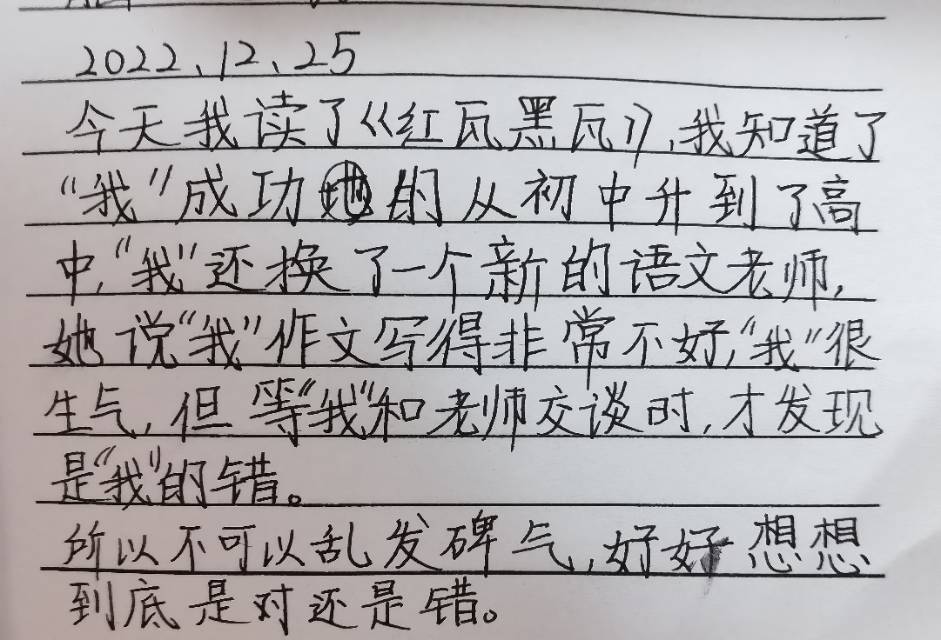 2022、12、25
今天我读了《红瓦黑瓦》,我知道了
“我”成功的从初中升到了高
中,“我”还换了一个新的语文老师,
她说“我”作文写得非常不好,“我”很
生气,但等“我”和老师交谈时,才发现
是“我”的错。
所以不可以乱发碑气,好好想想
到底是对还是错。